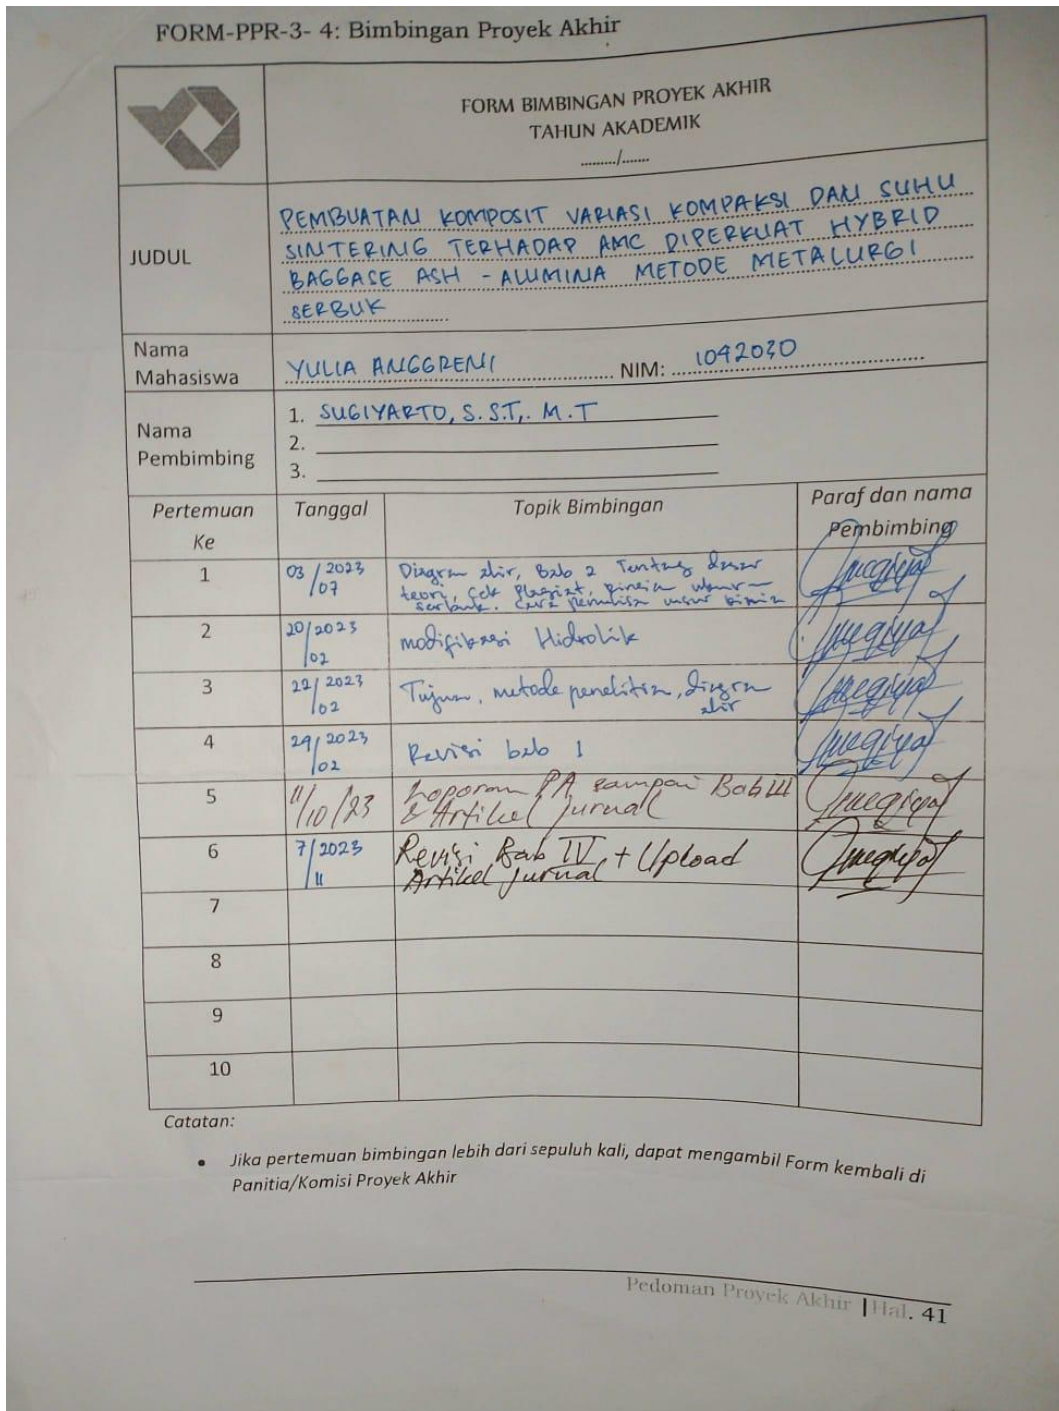 FORM-PPR-3- 4: Bimbingan Proyek Akhir
FORM BIMBINGAN PROYEK AKHIR
TAHUN AKADEMIK
........./.......
JUDUL
PEMBUATAN KOMPOSIT VARIASI KOMPAKSI DAN SUHU
SINTERING TERHADAP AMC DIPERKUAT HYBRID
BAGGASE ASH - ALUMINA METODE METALURGI
SERBUK
Nama
Mahasiswa
YULIA ANGGRENI NIM: 1042030
Nama
Pembimbing
1. SUGIYARTO, S.ST,. M.T
2.
3.
Pertemuan
Ke
Tanggal
Topik Bimbingan
Paraf dan nama
Pembimbing
1
03/2023
/07
Diagram alir, Bab 2 Tentang dasar
teori, cek plagiat, ukuran
serbuk. Cara penulisan unsur kimia
2
20/2023
/02
modifikasi Hidrolik
3
22/2023
/02
Tujuan, metode penelitian, diagram
alir
4
29/2023
/02
Revisi bab 1
5
11/10/23
Laporan PA sampai Bab III
& Artikel jurnal
6
7/2023
/11
Revisi Bab IV + Upload
Artikel jurnal
7
8
9
10
Catatan:
• Jika pertemuan bimbingan lebih dari sepuluh kali, dapat mengambil Form kembali di
Panitia/Komisi Proyek Akhir
Pedoman Proyek Akhir |Hal. 41